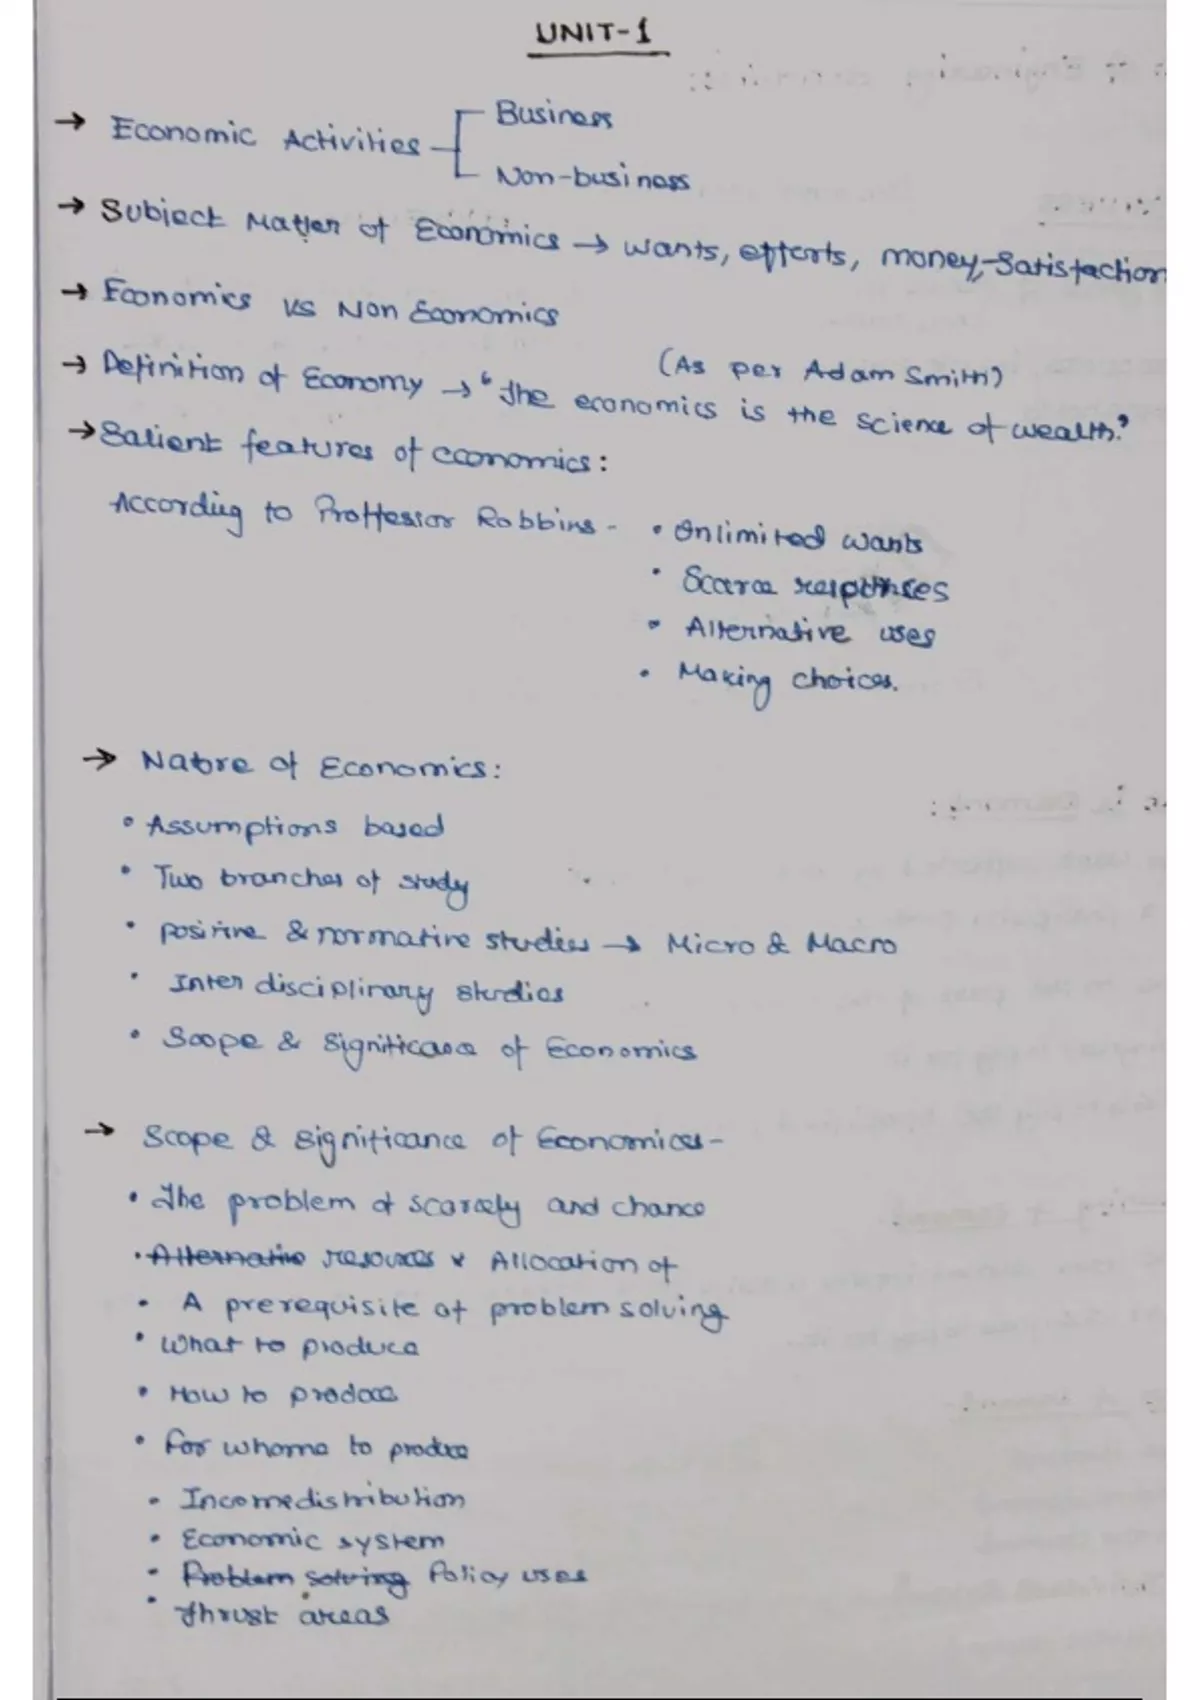 UNIT-1
→ Economic Activities
Business
Non-business
→ Subject Matter of Economics → wants, efforts, money, satisfaction
→ Economics vs Non Economics
(As per Adam Smith)
→ Definition of Economy → "The economics is the science of wealth."
→ Salient features of economics:
According to Proffessor Robbins - • Unlimited wants
• Scarce
• Alternative uses
• Making choices.
→ Nature of Economics:
• Assumptions based
• Two branches of study
• positive & normative studies → Micro & Macro
• Inter disciplinary studies
• Scope & significance of Economics
→ Scope & significance of Economics -
• The problem of and chance
• Alternative resources Allocation of
• A prerequisite of problem solving
• What to produce
• How to produce
• For whome to produce
• Income distribution
• Economic system
• Problem solving Policy uses
• Thrust areas